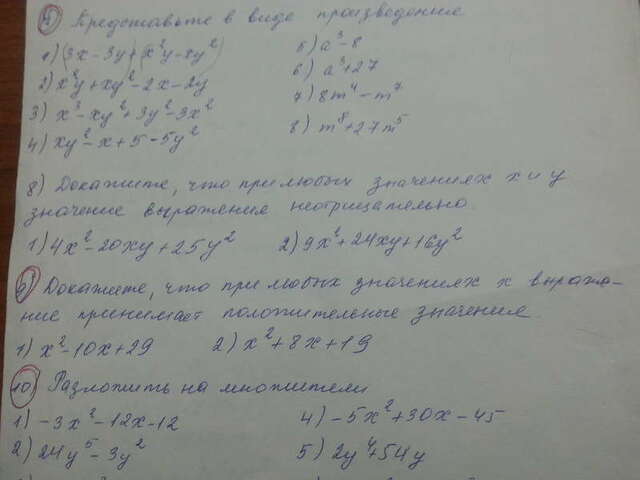 Представьте в виде произведения
1) (3x-3y)+(x²y-xy²)
5) a³-8
2) x²y+xy²-2x-2y
6) a³+27
3) x³-xy²+3y²-3x²
7) 8m⁴-m⁷
4) xy²-x+5-5y²
8) m⁸+27m⁵
8) Докажите, что при любых значениях x и y
значение выражения неотрицательно.
1) 4x²-20xy+25y²
2) 9x²+24xy+16y²
9) Докажите, что при любых значениях x выраже-
ние принимает положительные значения
1) x²-10x+29
2) x²+8x+19
10) Разложить на множители
1) -3x²-12x-12
4) -5x²+30x-45
2) 24y⁵-3y²
5) 2y⁴+54y